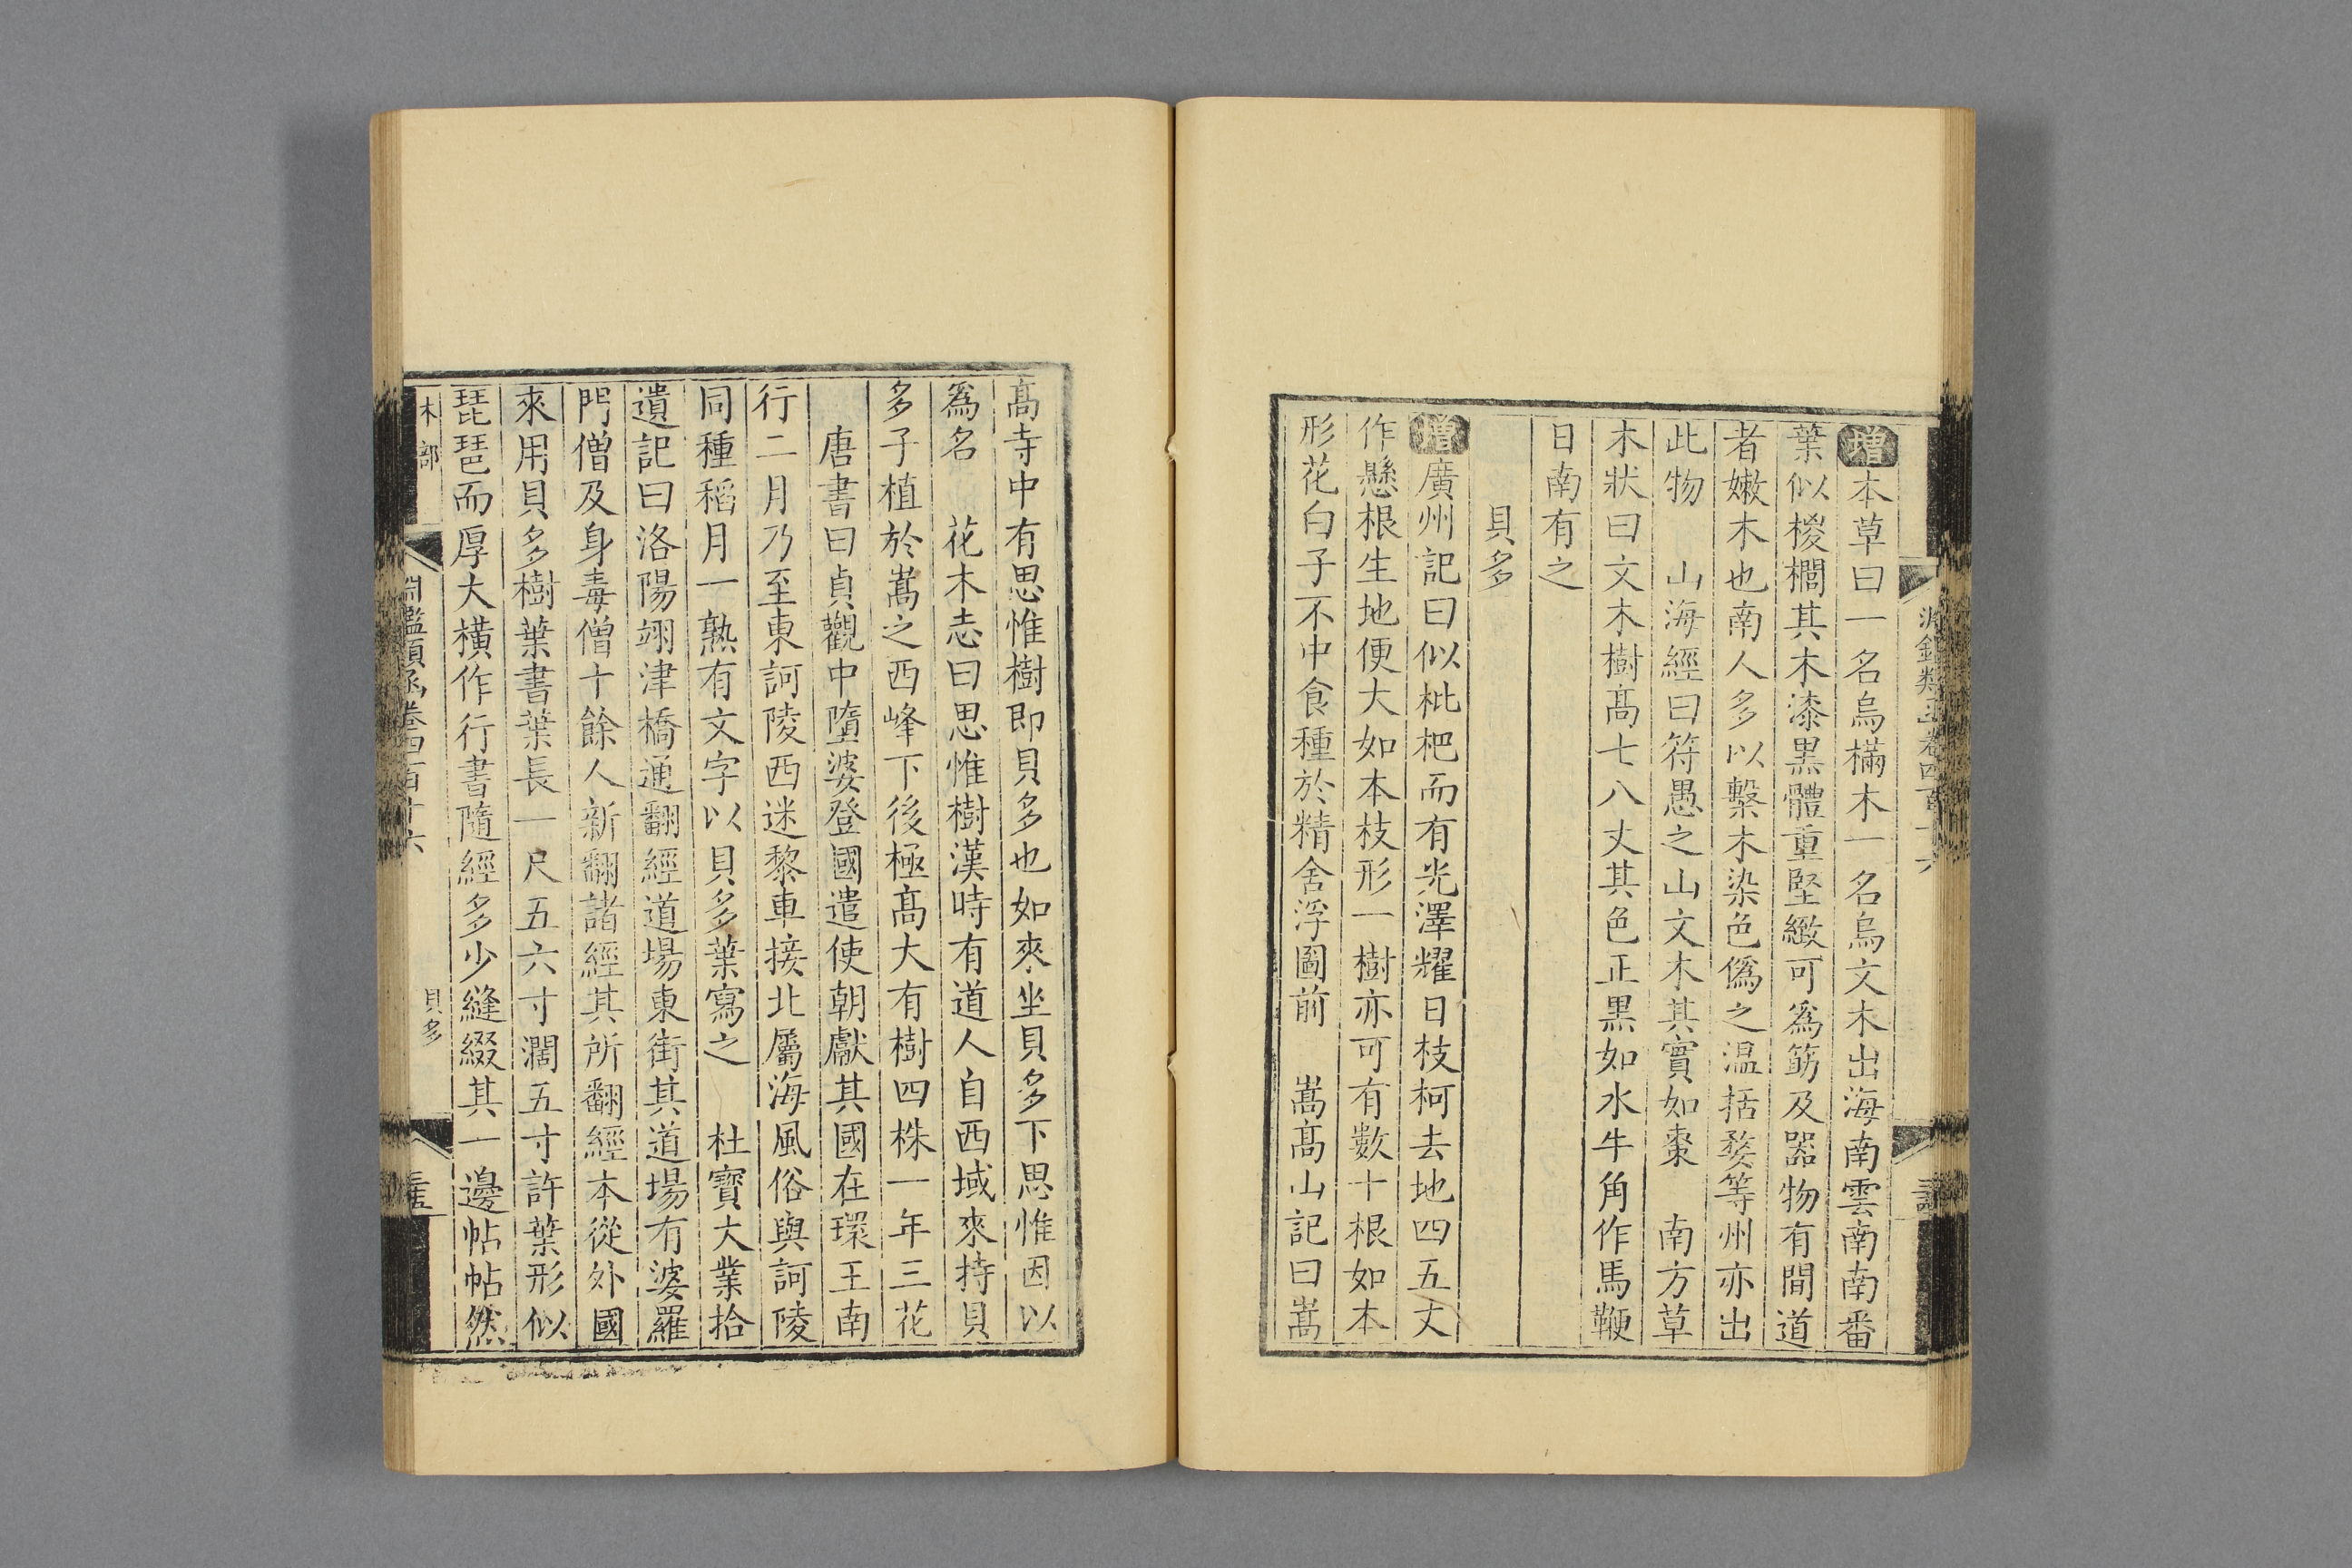 增本草曰一名烏樠木一名烏文木出海南雲南南番
葉似椶櫚其木漆黑體重堅緻可爲筯及器物有間道
者嫩木也南人多以繫木染色僞之温括婺等州亦出
此物　山海經曰符愚之山文木其實如棗　南方草
木狀曰文木樹髙七八丈其色正黑如水牛角作馬鞭
日南有之
貝多
增廣州記曰似枇杷而有光澤耀日枝柯去地四五丈
作懸根生地便大如本枝形一樹亦可有數十根如本
形花白子不中食種於精舍浮圖前　嵩髙山記曰嵩
髙寺中有思惟樹即貝多也如來坐貝多下思惟因以
爲名　花木志曰思惟樹漢時有道人自西域來持貝
多子植於嵩之西峰下後極髙大有樹四株一年三花
唐書曰貞觀中墮婆登國遣使朝獻其國在環王南
行二月乃至東訶陵西迷黎車接北屬海風俗與訶陵
同種稻月一熟有文字以貝多葉寫之　杜寶大業拾
遺記曰洛陽翊津橋通翻經道場東街其道場有婆羅
門僧及身毒僧十餘人新翻諸經其所翻經本從外國
來用貝多樹葉書葉長一尺五六寸濶五寸許葉形似
琵琶而厚大橫作行書隨經多少縫綴其一邊帖帖然
木部
淵鑑類函卷四百十六
貝多